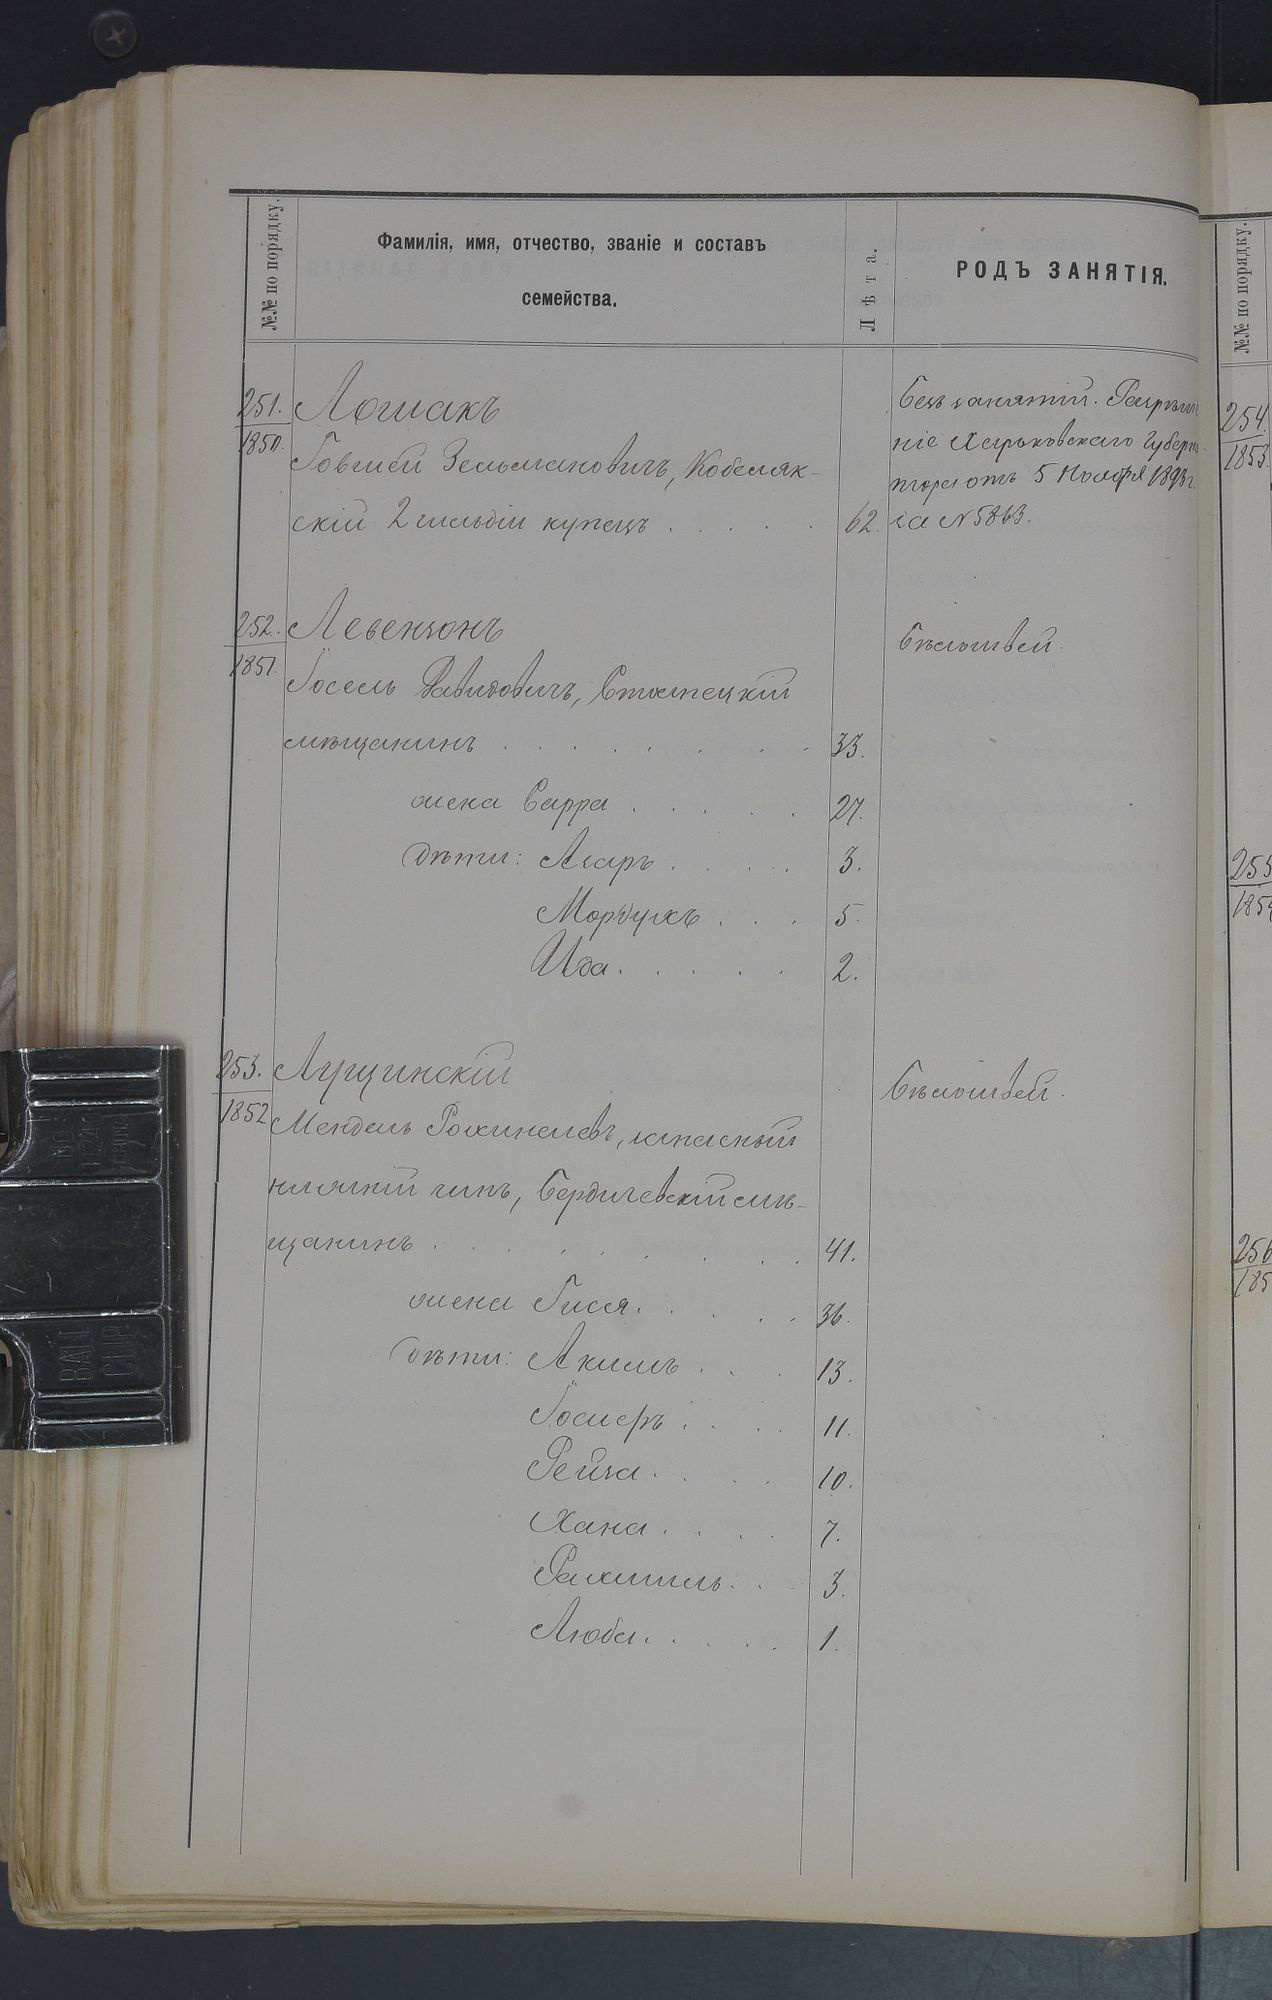 №№ по порядку.
Фамилія, имя, отчество, званіе и составъ
семейства.
Лѣта.
РОДЪ ЗАНЯТІЯ.
251.
1850.
Лошакъ
Говшей Зельмановичъ, Кобеляк-
скій 2 гильдіи купецъ . . . . . 62.
Безъ занятій. Разрѣше
ніе Харьковскаго Губерна-
тора отъ 5 Ноября 1893 г.
за № 5863.
252.
1851.
Левензонъ
Іосель Давидовичъ, 
мѣщанинъ . . . . . . . . . 33.
жена Сарра . . . . . 27.
дѣти: Агаръ . . . . 3.
Мордухъ . . . 5.
Ида . . . . . 2.
Бѣлошвей.
253.
1852
Мендель запасный
нижній чинъ, Бердичевскій мѣ-
щанинъ . . . . . . . . 41.
жена Гися. . . . . 36.
дѣти: Акимъ . . . 13.
Іосифъ . . . . 11.
Рейза . . . . 10.
Хана . . . . 7.
Рахиль . . . 3.
Люба . . . . . 1.
Бѣлошвей.
№№ по порядку.
254.
1853.
255
185
256
185
BALL
CLIP